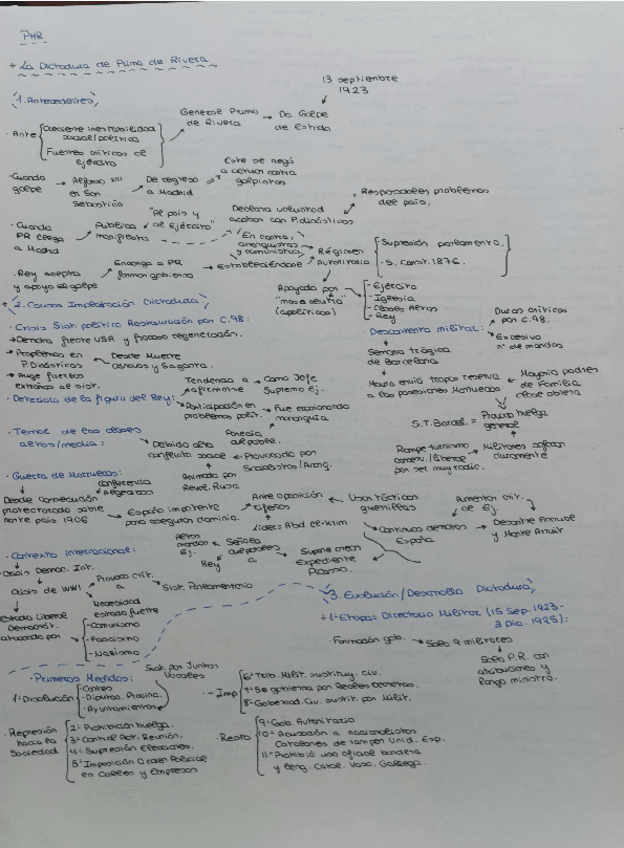 PMR
* La Dictadura de Primo de Rivera
13 septiembre
1923
1. Antecedentes
General Primo de Rivera → Da Golpe de Estado
· Ante
Creciente inestabilidad social/política
Fuertes críticas al ejército
· Cuando golpe → Alfonso XIII en San Sebastián → De regreso a Madrid
Este se negó a actuar contra golpistas
· Cuando PR llega a Madrid → Publica manifiesto
"Al país y al Ejército"
Declara voluntad acabar con P. dinásticos
Responsables problemas del país.
En contra, anarquistas y comunistas
· Rey acepta y apoya el golpe → Encarga a PR formar gobierno → Estableciéndose
Régimen Autoritario
- Supresión parlamento.
- S. Const. 1876.
Apoyado por
"masa neutra" (apolíticos)
- Ejército
- Iglesia
- Clases Altas
- Rey
* 2. Causas Implantación Dictadura
· Crisis Sist. político Restauración por C.98:
→ Derrota frente USA y fracaso regeneración.
→ Problemas en P. Dinásticos → Desde Muerte Cánovas y Sagasta.
→ Auge fuerzas extrañas al sist.
· Deterioro de la figura del Rey:
Tendencia a afirmarse → Como Jefe Supremo Ej.
Participación en problemas polít. → Fue erosionando monarquía
· Temor de las clases altas/media:
Debido alta conflicto social ← Provocado por Socialistas/Anarq.
Animada por Revol. Rusa.
· Descontento militar:
Duras críticas por C.98.
Excesivo nº de mandos
Semana trágica de Barcelona
Maura envió tropas reserva a las posesiones Marruecos
Mayoría padres de Familia clase obrera
S.T. Barcel. = Provocó huelga general
Rompe turnismo conserv./liberal por ser muy radic.
Militares sofocan duramente
· Guerra de Marruecos:
conferencia Algeciras
Desde consecución protectorado sobre norte país 1906
España impotente para asegurar dominio.
Ante oposición rifeños
Líder: Abd el-Krim
Usan tácticas guerrillas
Aumentan crít. al Ej.
Continuas derrotas España
Desastre Annual y Monte Arruit
Altos mandos Ej.
Señala
Rey
Supone crean Expediente Picasso.
· Contexto internacional:
Crisis Democ. Int.
Crisis de WWI
Provocó crít. a Sist. Parlamentario
Necesidad estado fuerte
Estado Liberal Democrát. atacado por
- Comunismo
- Fascismo
- Nazismo
3. Evolución/Desarrollo Dictadura
* 1ª Etapa: Directorio Militar (15 Sep. 1923 - 3 Dic. 1925):
· Formación gob. → Solo 9 militares
Solo P.R. con atribuciones y Rango ministro.
· Primeras Medidas:
Sust. por Juntas Vocales
1ª Disolución
Cortes
· Diputac. Provinc.
· Ayuntamientos
Represión hacia la Sociedad
2ª Prohibición huelga.
3ª Control Act. Reunión.
4ª Supresión Elecciones.
5ª Imposición Orden Policial en Calles y Empresas
- Imp
6ª Trib. Milit. sustituy. civ.
7ª Se gobierna por Reales Decretos.
8ª Gobernad. Civ. sustit. por Milit.
· Resto
9ª Gob. Autoritario
10ª Acusación a nacionalistas Catalanes de romper Unid. Esp.
11ª Prohibió uso oficial bandera y leng. Catal. Vasc. Gallega.